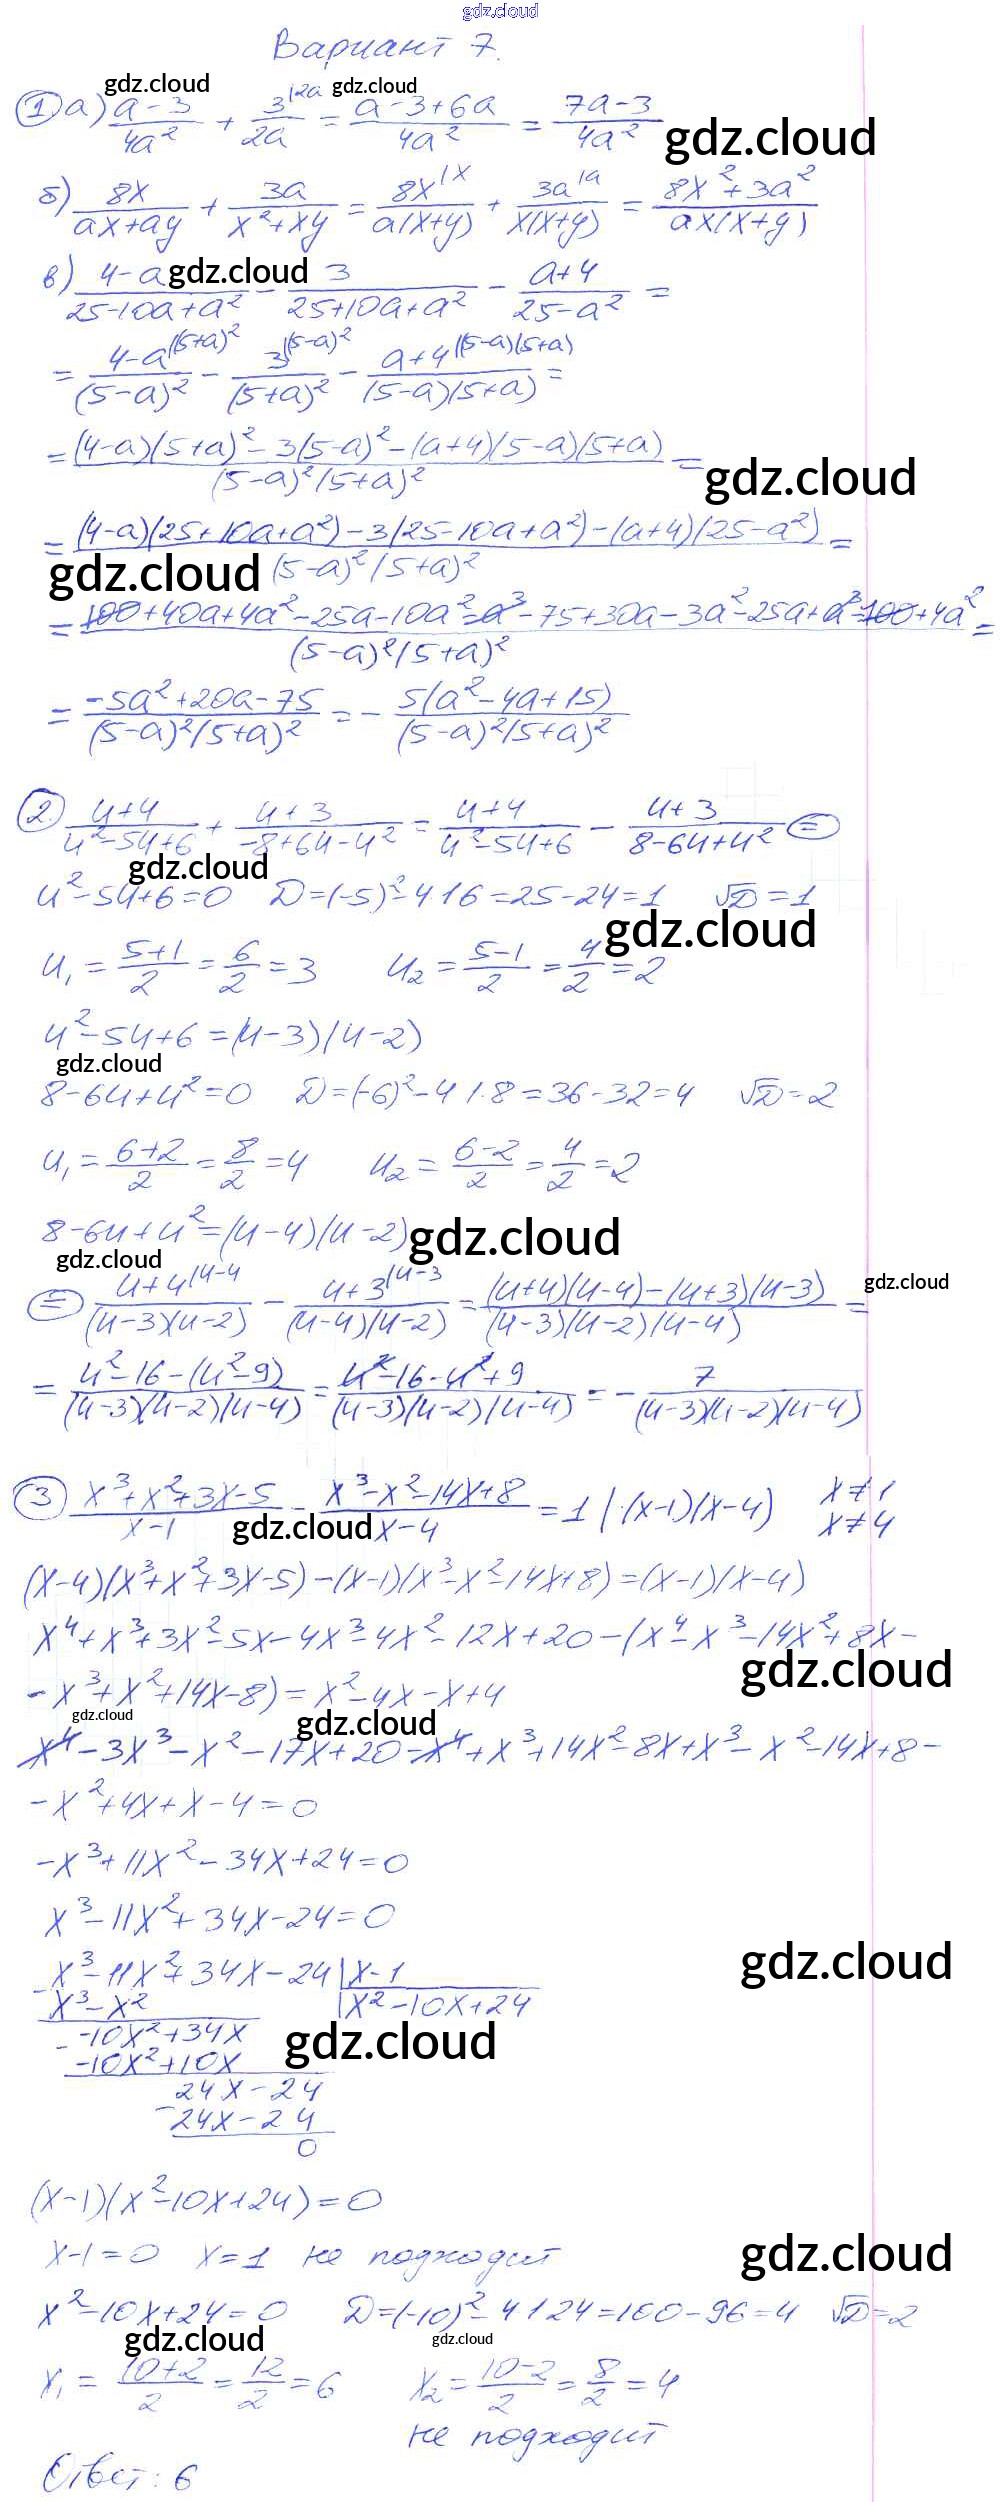 gdz.cloud
Вариант 7.
gdz.cloud gdz.cloud
① а) (a-3)/(4a²) + 3^{|2a}/(2a) = (a-3+6a)/(4a²) = (7a-3)/(4a²)
gdz.cloud
б) 8x/(ax+ay) + 3a/(x²+xy) = 8x^{|x}/(a(x+y)) + 3a^{|a}/(x(x+y)) = (8x²+3a²)/(ax(x+y))
в) (4-a)/(25-10a+a²) - 3/(25+10a+a²) - (a+4)/(25-a²) =
gdz.cloud
= (4-a)^{|(5+a)²}/(5-a)² - 3^{|(5-a)²}/(5+a)² - (a+4)^{|(5-a)(5+a)}/((5-a)(5+a)) =
= ((4-a)(5+a)²-3(5-a)²-(a+4)(5-a)(5+a))/((5-a)²(5+a)²) =
gdz.cloud
= ((4-a)(25+10a+a²)-3(25-10a+a²)-(a+4)(25-a²))/((5-a)²(5+a)²) =
gdz.cloud
= (100+40a+4a²-25a-10a²-a³-75+30a-3a²-25a+a³-100+4a²)/((5-a)²(5+a)²) =
= (-5a²+20a-75)/((5-a)²(5+a)²) = - 5(a²-4a+15)/((5-a)²(5+a)²)
② (u+4)/(u²-5u+6) + (u+3)/(-8+6u-u²) = (u+4)/(u²-5u+6) - (u+3)/(8-6u+u²) ⊜
gdz.cloud
u²-5u+6=0 D=(-5)²-4·1·6=25-24=1 √D=1
gdz.cloud
u₁ = (5+1)/2 = 6/2 = 3 u₂ = (5-1)/2 = 4/2 = 2
u²-5u+6=(u-3)(u-2)
gdz.cloud
8-6u+u²=0 D=(-6)²-4·1·8=36-32=4 √D=2
u₁ = (6+2)/2 = 8/2 = 4 u₂ = (6-2)/2 = 4/2 = 2
8-6u+u²=(u-4)(u-2)
gdz.cloud
gdz.cloud gdz.cloud
⊜ (u+4)^{|u-4}/((u-3)(u-2)) - (u+3)^{|u-3}/((u-4)(u-2)) = ((u+4)(u-4)-(u+3)(u-3))/((u-3)(u-2)(u-4)) =
= (u²-16-(u²-9))/((u-3)(u-2)(u-4)) = (u²-16-u²+9)/((u-3)(u-2)(u-4)) = - 7/((u-3)(u-2)(u-4))
③ (x³+x²+3x-5)/(x-1) - (x³-x²-14x+8)/(x-4) = 1 |·(x-1)(x-4) x≠1
x≠4
gdz.cloud
(x-4)(x³+x²+3x-5)-(x-1)(x³-x²-14x+8)=(x-1)(x-4)
x⁴+x³+3x²-5x-4x³-4x²-12x+20-(x⁴-x³-14x²+8x-
gdz.cloud
-x³+x²+14x-8)=x²-4x-x+4
gdz.cloud gdz.cloud
x⁴-3x³-x²-17x+20-x⁴+x³+14x²-8x+x³-x²-14x+8-
-x²+4x+x-4=0
-x³+11x²-34x+24=0
x³-11x²+34x-24=0
gdz.cloud
x³-11x²+34x-24 |x-1
x³-x² |x²-10x+24
-10x²+34x
gdz.cloud
-10x²+10x
24x-24
24x-24
0
(x-1)(x²-10x+24)=0
x-1=0 x=1 не подходит
gdz.cloud
x²-10x+24=0 D=(-10)²-4·1·24=100-96=4 √D=2
gdz.cloud gdz.cloud
x₁ = (10+2)/2 = 12/2 = 6 x₂ = (10-2)/2 = 8/2 = 4
не подходит
Ответ: 6